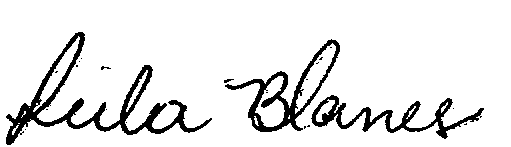 Leila Blanes